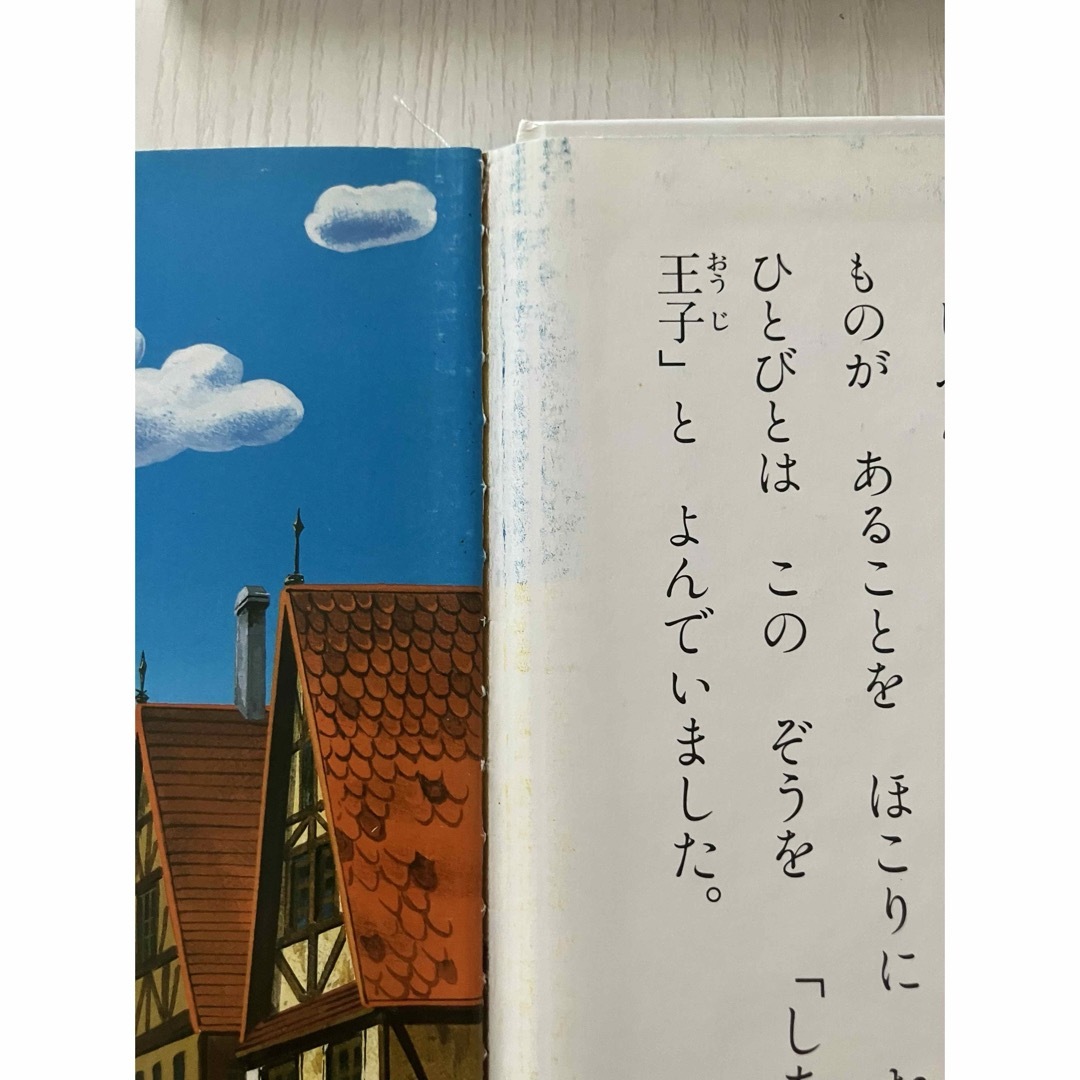 ものが あることを ほこりに
ひとびとは この ぞうを 「し
王子」と よんでいました。
おうじ